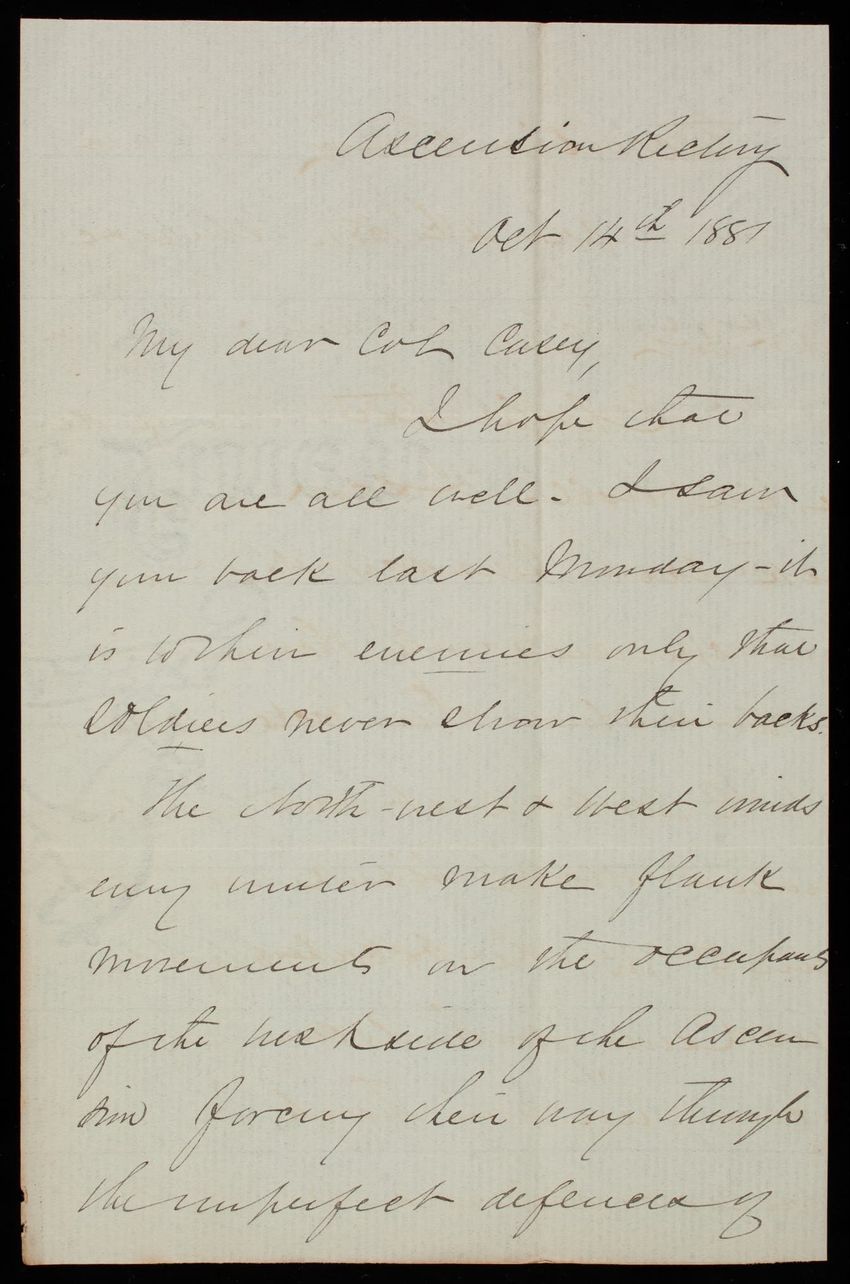 Ascension Rectory
Oct 14th 1881
My dear Col Casey,
I hope that
you are all well - I saw
your back last Monday - it
is to their enemies only that
soldiers never show their backs.
The North-west & West winds
every winter make flank
movements on the occupants
of the west side of the Ascen
sion forcing their way through
the imperfect defences of